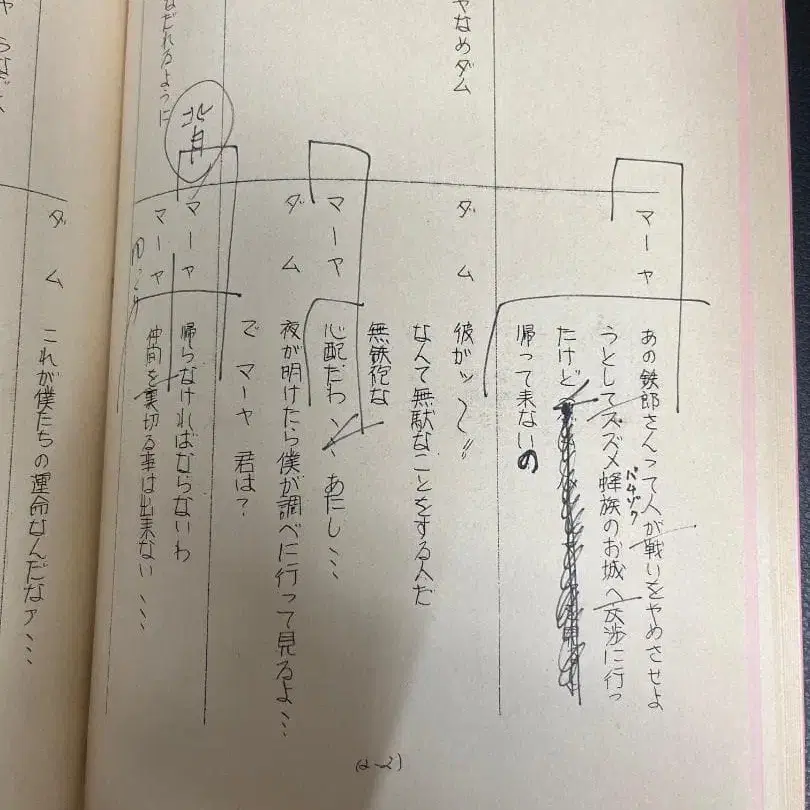 やなめダム
マーヤ
あの鉄郎さんって人が戦いをやめさせよ
うとしてスズメ蜂族のお城へ交渉に行っ
バチゾク
たけど
帰って来ないの
ダム
彼がッ〜!!
なんて無駄なことをする人だ
無鉄砲な
マーヤ
心配だわ、、あたし…
ダム
夜が明けたら僕が調べに行って見るよ…
で マーヤ 君は?
背
マーヤ
帰らなければならないわ
マーヤ
仲間を裏切る事は出来ない…
なだれるように
ダム
これが僕たちの運命なんだなァ…